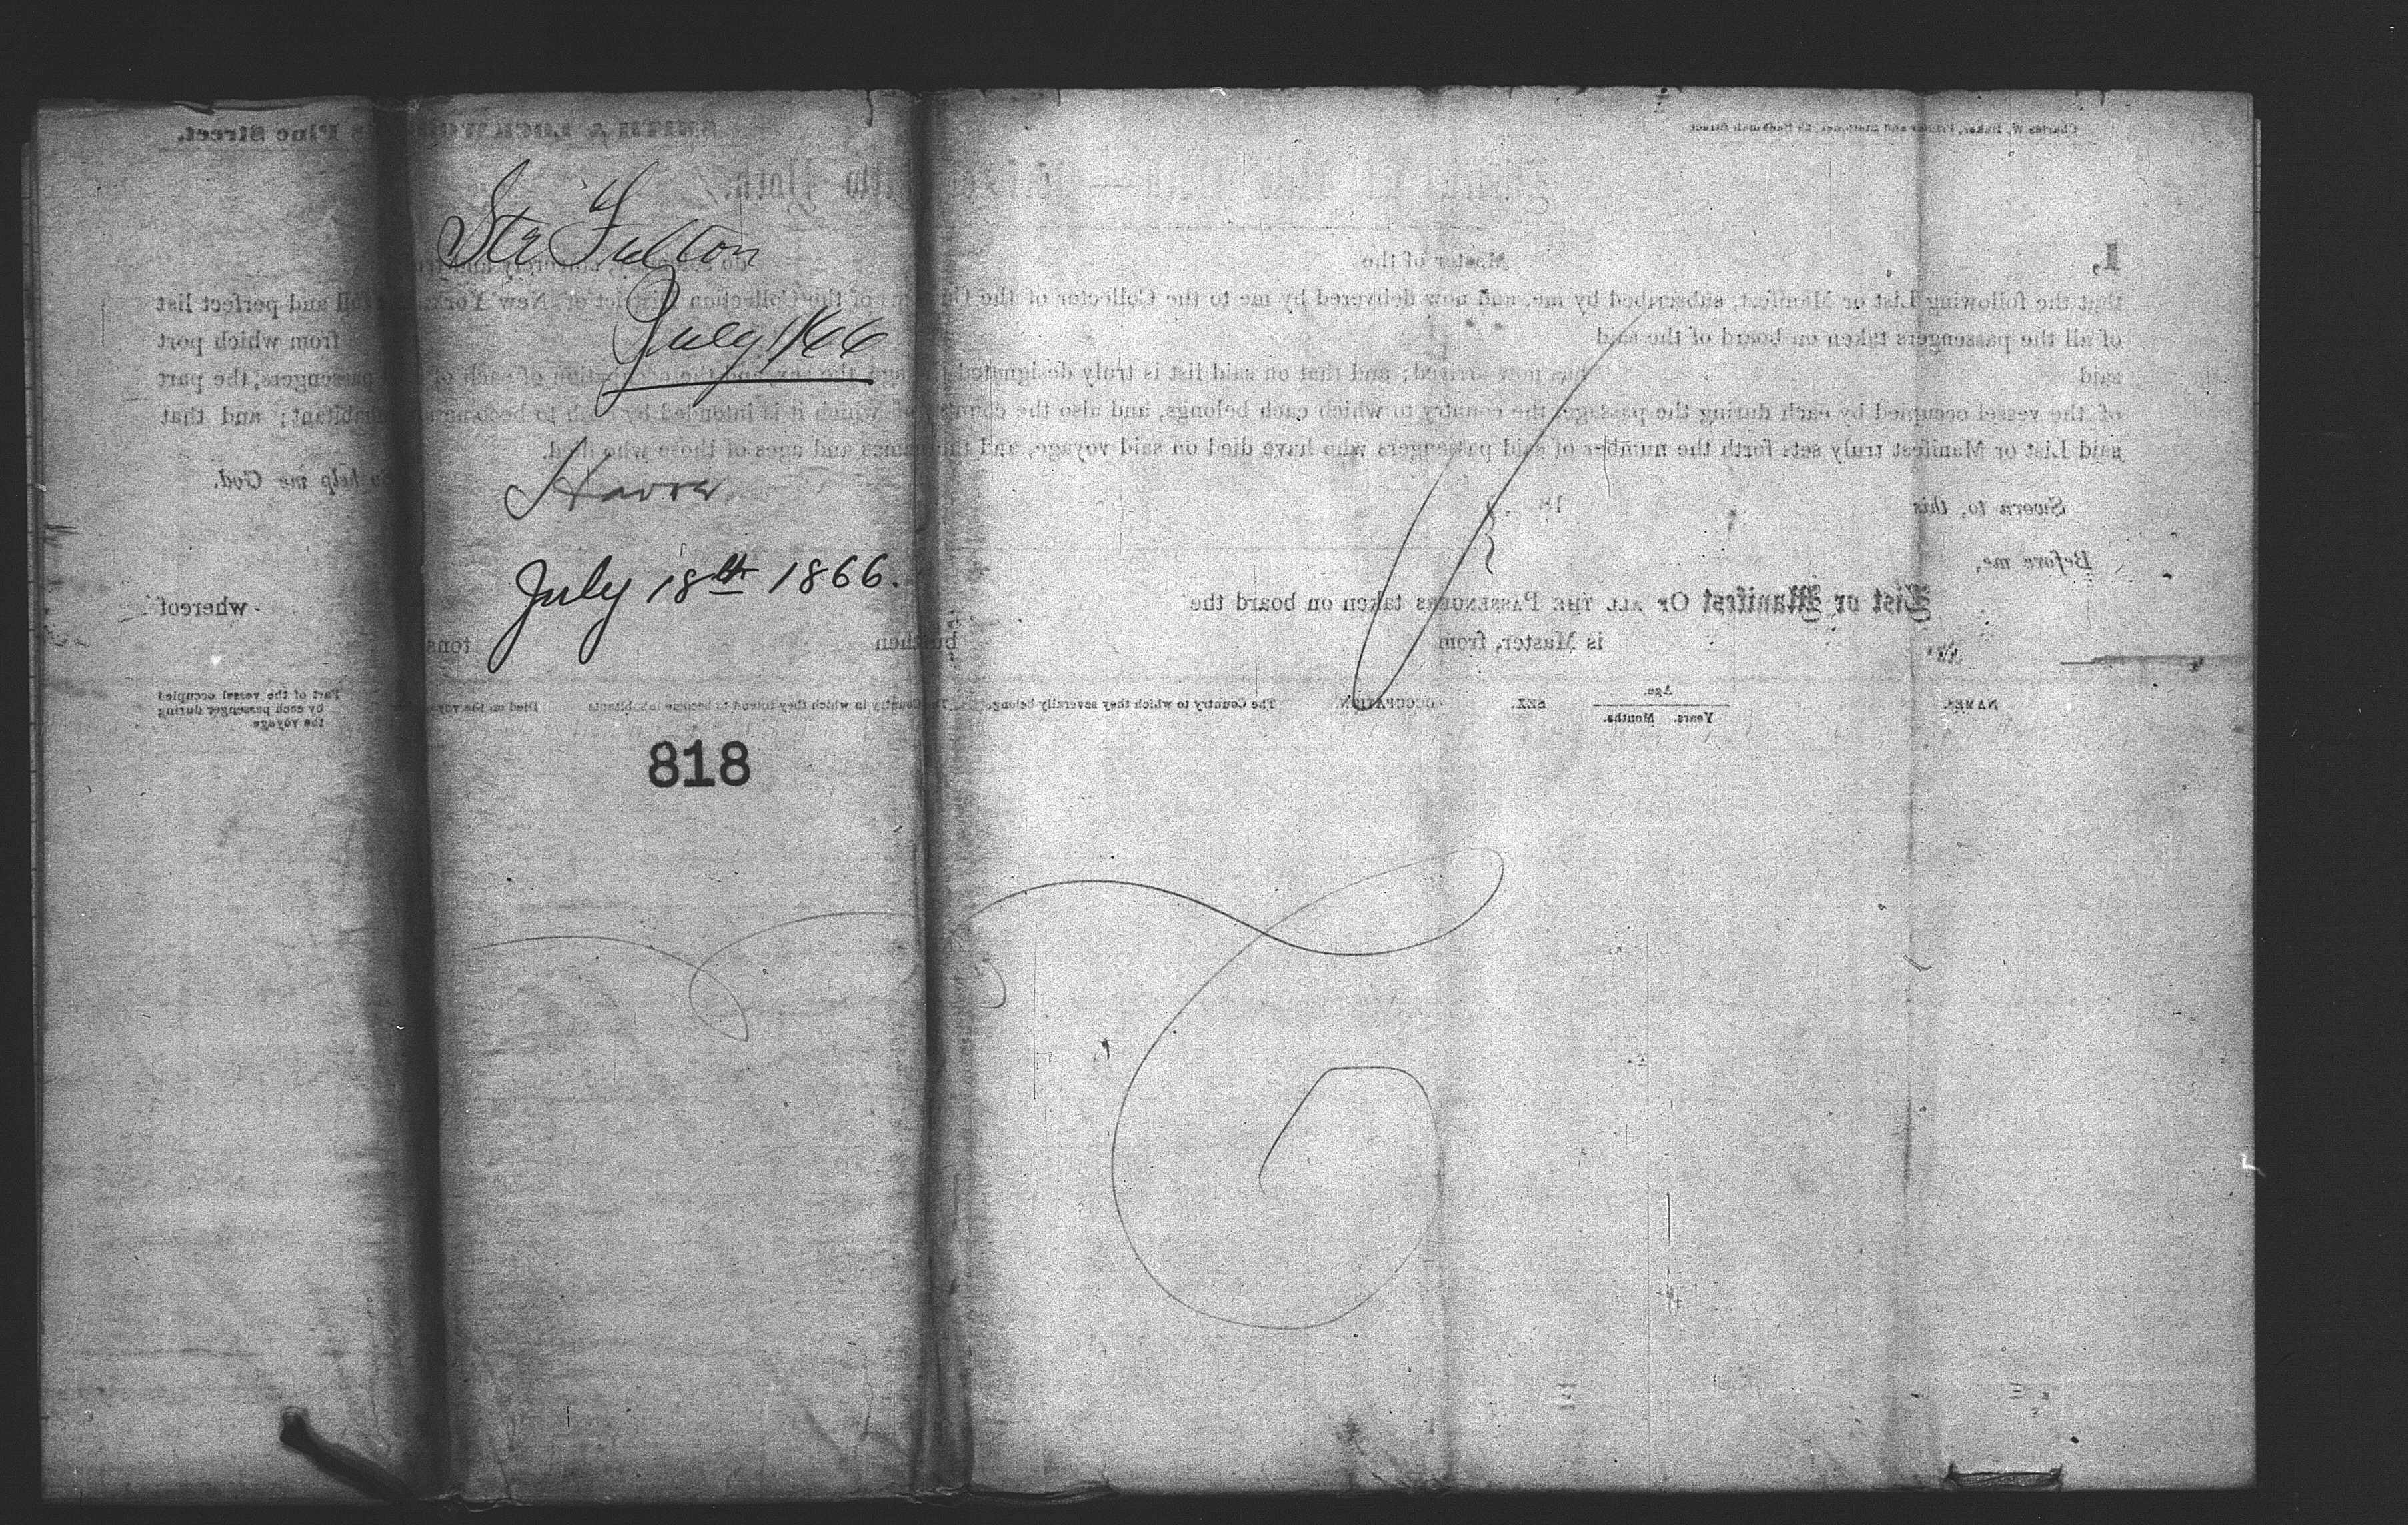 Str Fulton
July 1866
Havre
July 18th 1866.
818
Charles W. Baker, Printer and Stationer, Beekman Street
Pine Street.
District of New York — Port of New York.
I, Master of the do solemnly, sincerely and truly
that the following List or Manifest, subscribed by me, and now delivered by me to the Collector of the Customs of the Collection District of New York, is a full and perfect list
of all the passengers taken on board of the said from which port
said has now arrived; and that on said list is truly designated the age, the sex, and the occupation of each of said passengers, the part
of the vessel occupied by each during the passage, the country to which each belongs, and also the country of which it is intended by each to become an inhabitant; and that
said List or Manifest truly sets forth the number of said passengers who have died on said voyage, and the names and ages of those who died.
So help me God.
Sworn to, this 18
Before me,
List or Manifest OF ALL THE PASSENGERS taken on board the whereof
is Master, from burthen tons
NAMES. Age. Years. Months. SEX. OCCUPATION. The Country to which they severally belong. The Country in which they intend to become inhabitants Died on the voyage Part of the vessel occupied by each passenger during the voyage.